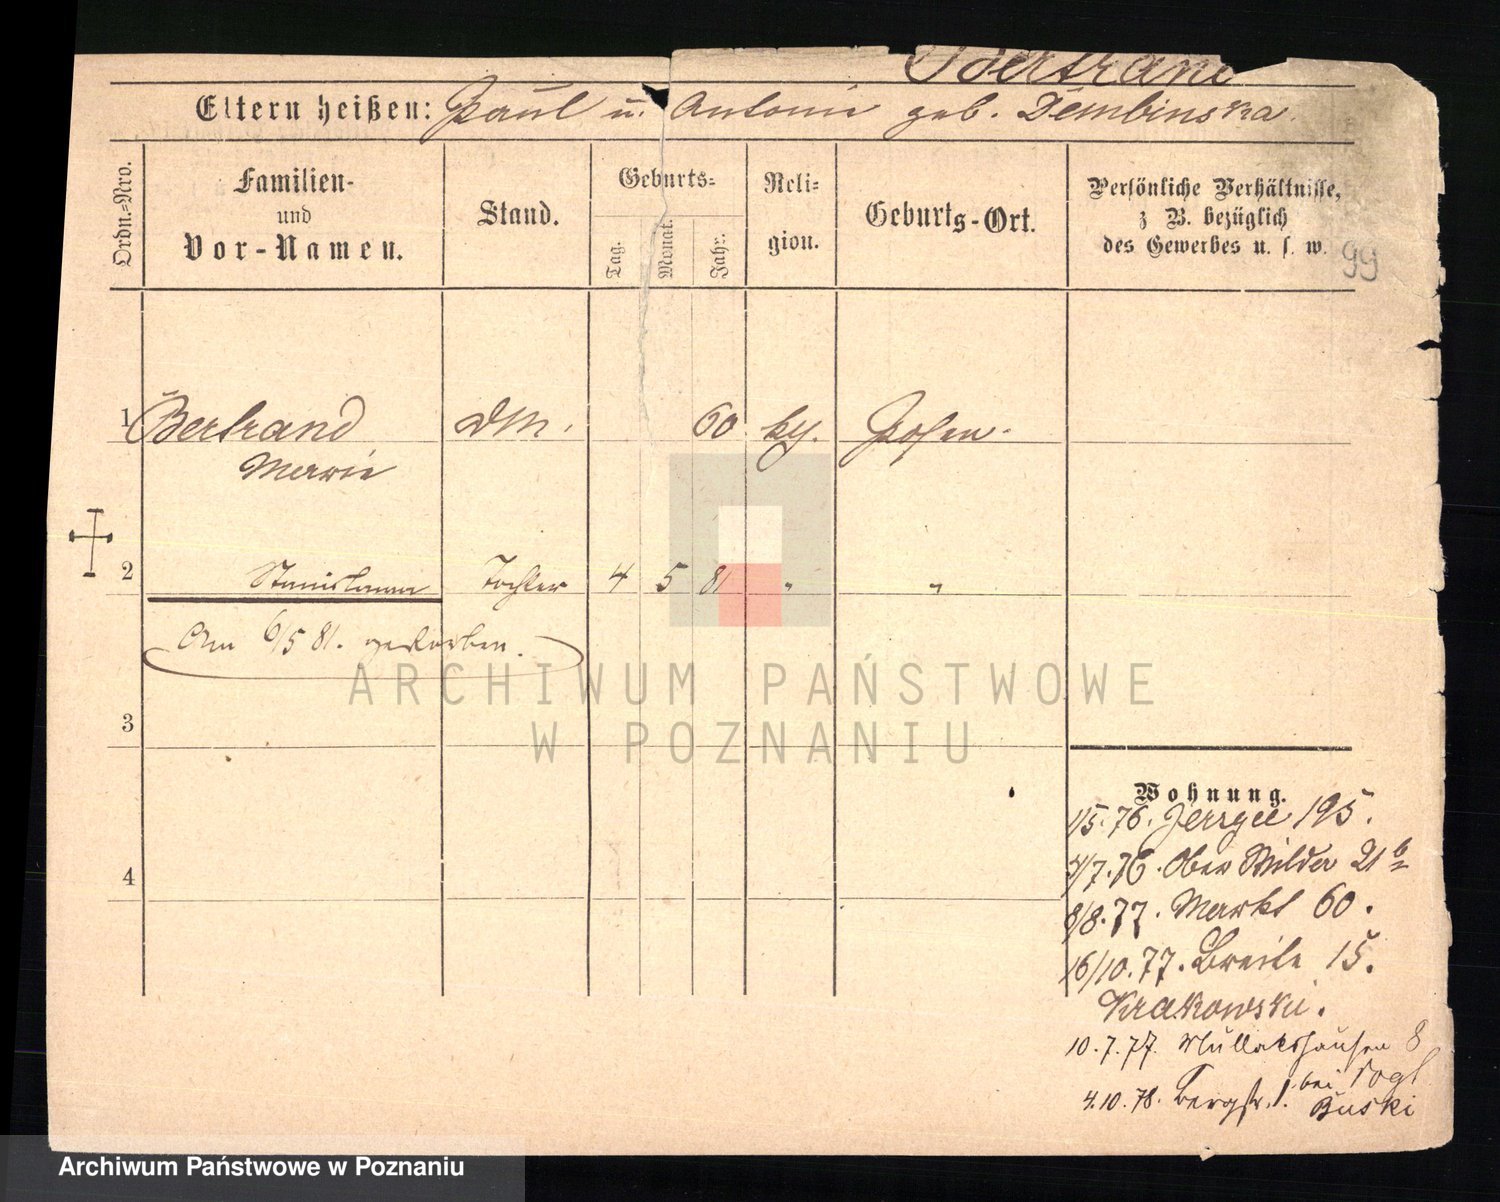 Bertrand
Eltern heißen: Paul u. Antonie geb. Dembinska.
Ordn.-Nro.
Familien-
und
Vor-Namen.
Stand.
Geburts-
Tag.
Monat.
Jahr.
Reli-
gion.
Geburts-Ort.
Persönliche Verhältnisse,
z B. bezüglich
des Gewerbes u. s. w.
99
1 Bertrand DM. 60 kth. Posen.
Marie
2 Stanislawa Tochter 4 5 81 " "
Am 6/5 81. gestorben.
3
4
Wohnung.
1/5. 76. Jerzyce 195.
7/7. 76. Ober Wilda 21 b
8/8. 77. Markt 60.
16/10. 77. Breite 15.
Krakowski.
10. 7. 77. Müllakshausen 8
4. 10. 78. Bergstr. 1. bei
ARCHIWUM PAŃSTWOWE
W POZNANIU
Archiwum Państwowe w Poznaniu